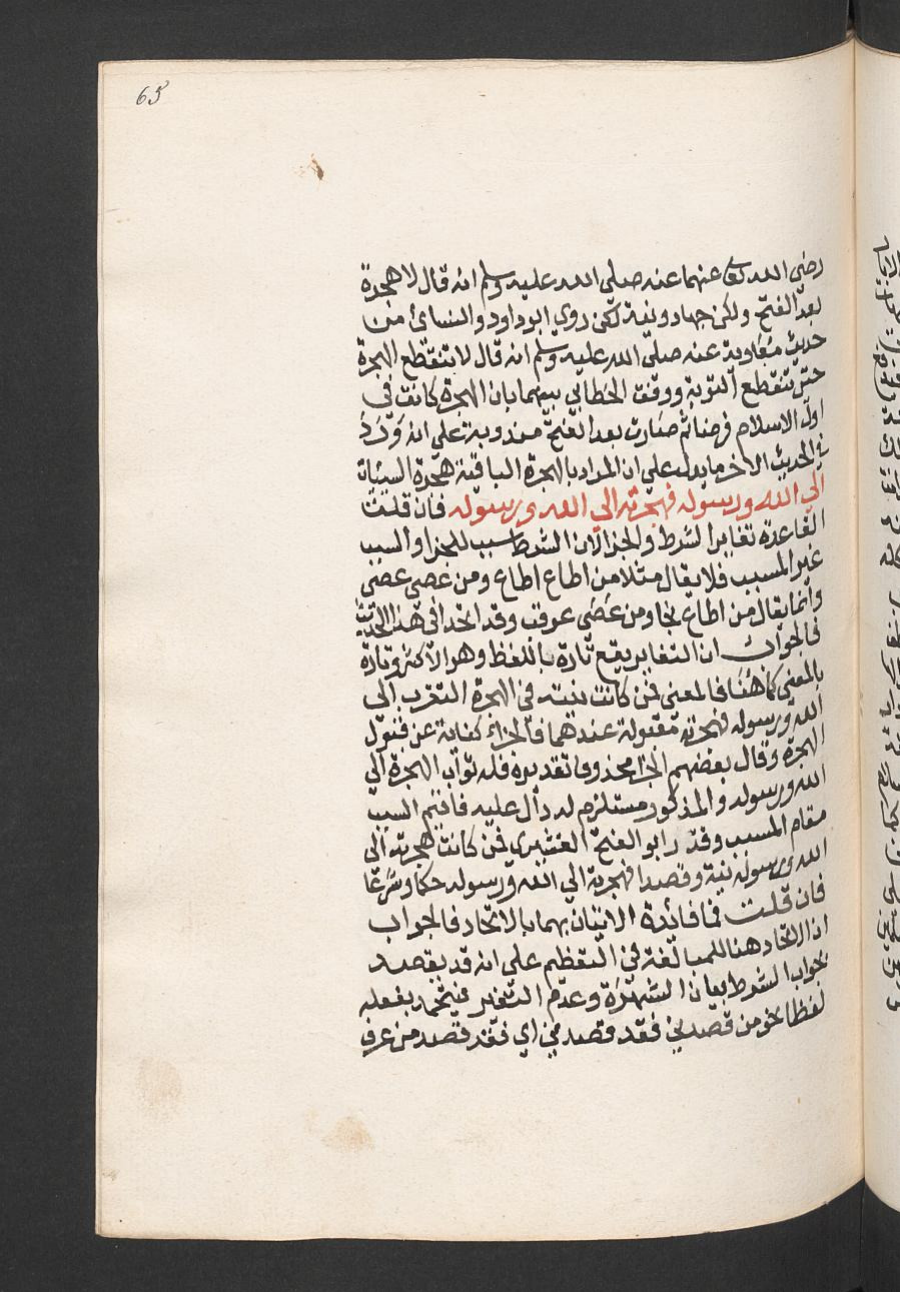 65
رضي الله تعالى عنهما عنه صلى الله عليه وسلم انه قال لا هجرة
بعد الفتح ولكن جهاد ونية لكن روي ابو داود والنسائ من
حديث معاوية عنه صلى الله عليه وسلم انه قال لا تنقطع الهجرة
حتى تنقطع التوبة ووفق الخطابي بينهما بان الهجرة كانت في
اول الاسلام فرضا ثم صارت بعد الفتح مندوبة على انه ورد
في الحديث الاخر ما يدل على ان المراد بالهجرة الباقية هجرة السيئات
الي الله ورسوله فهجرته الي الله ورسوله فان قلت
القاعدة تغاير الشرط والجزا لان الشرط سبب للجزا والسبب
غير المسبب فلا يقال مثلا من اطاع اطاع ومن عصي عصي
وانما يقال من اطاع نجا ومن عصي عوقب وقد اتحدا في هذا الحديث
فالجواب ان التغاير يقع تارة باللفظ وهو الاكثر وتارة
بالمعني كما هنا فالمعني فمن كانت نيته في الهجرة التقرب الي
الله ورسوله فهجرته مقبولة عندهما فالجزاء كناية عن قبول
الهجرة وقال بعضهم الجزا محذوف تقديره فله ثواب الهجرة الي
الله ورسوله والمذكور مستلزم له دال عليه فاقيم السبب
مقام المسبب وقدر ابو الفتح القشيري فمن كانت هجرته الي
الله ورسوله نية وقصدا فهجرته الي الله ورسوله حكما وشرعا
فان قلت فما فائدة الاتيان بهما بالاتحاد فالجواب
ان الاتحاد هنا للمبالغة في التعظيم على انه قد يقصد
بجواب الشرط بيان الشهرة وعدم التغير فيتحد بفعله
لفظا نحو من قصدني فقد قصدني اي فقد قصد من عرف